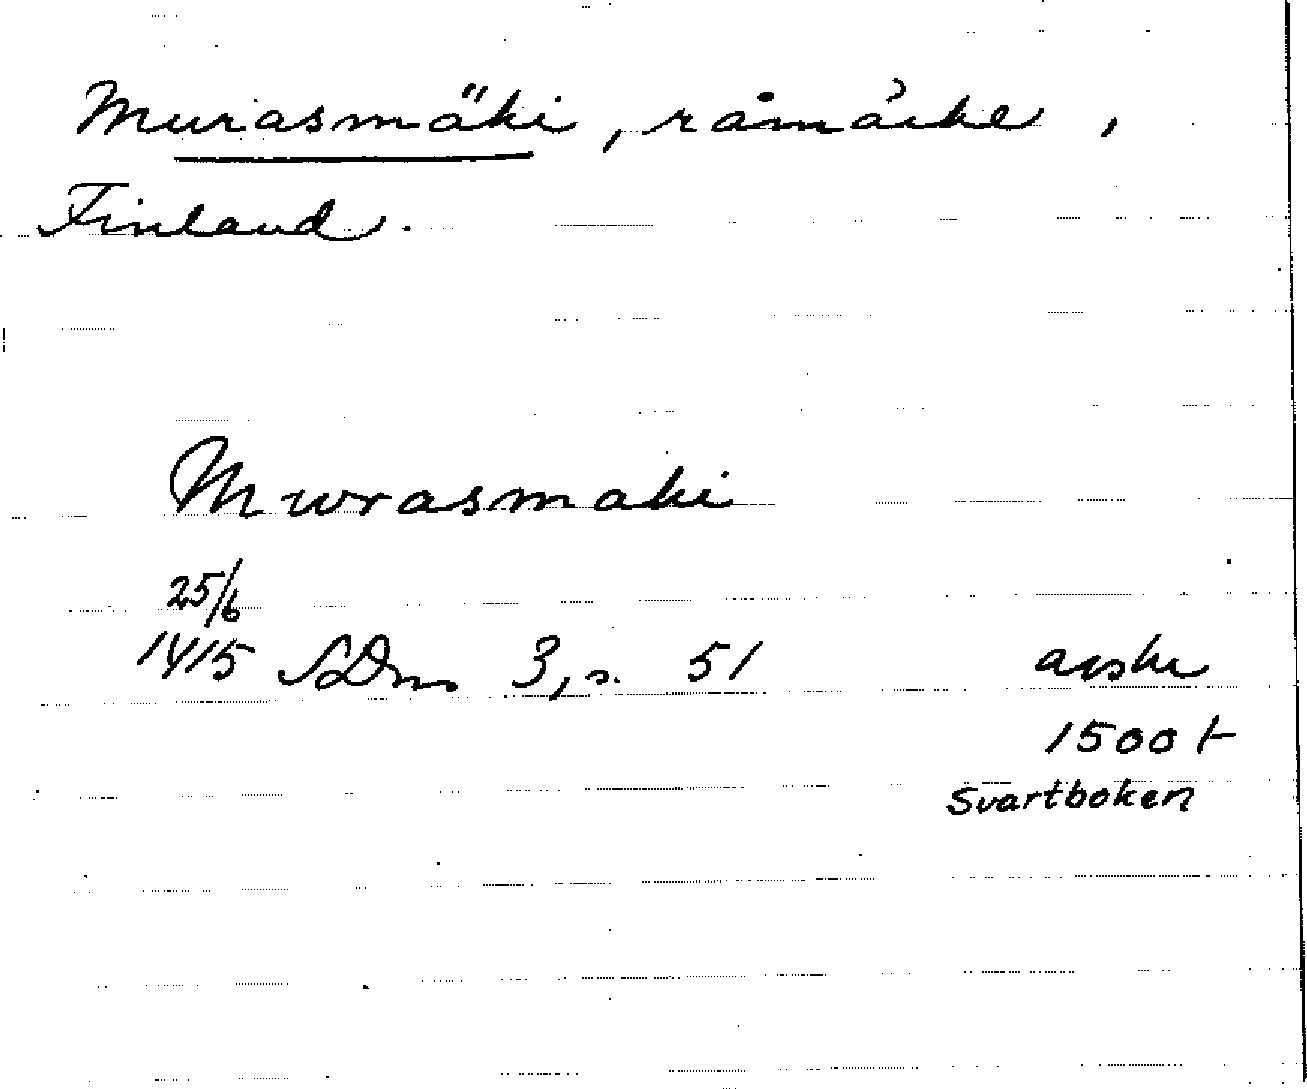 Murasmäki, råmärke,
Finland.
Mwrasmaki
25/6
1415 SDns 3, s. 51 avskr
1500 t
Svartboken